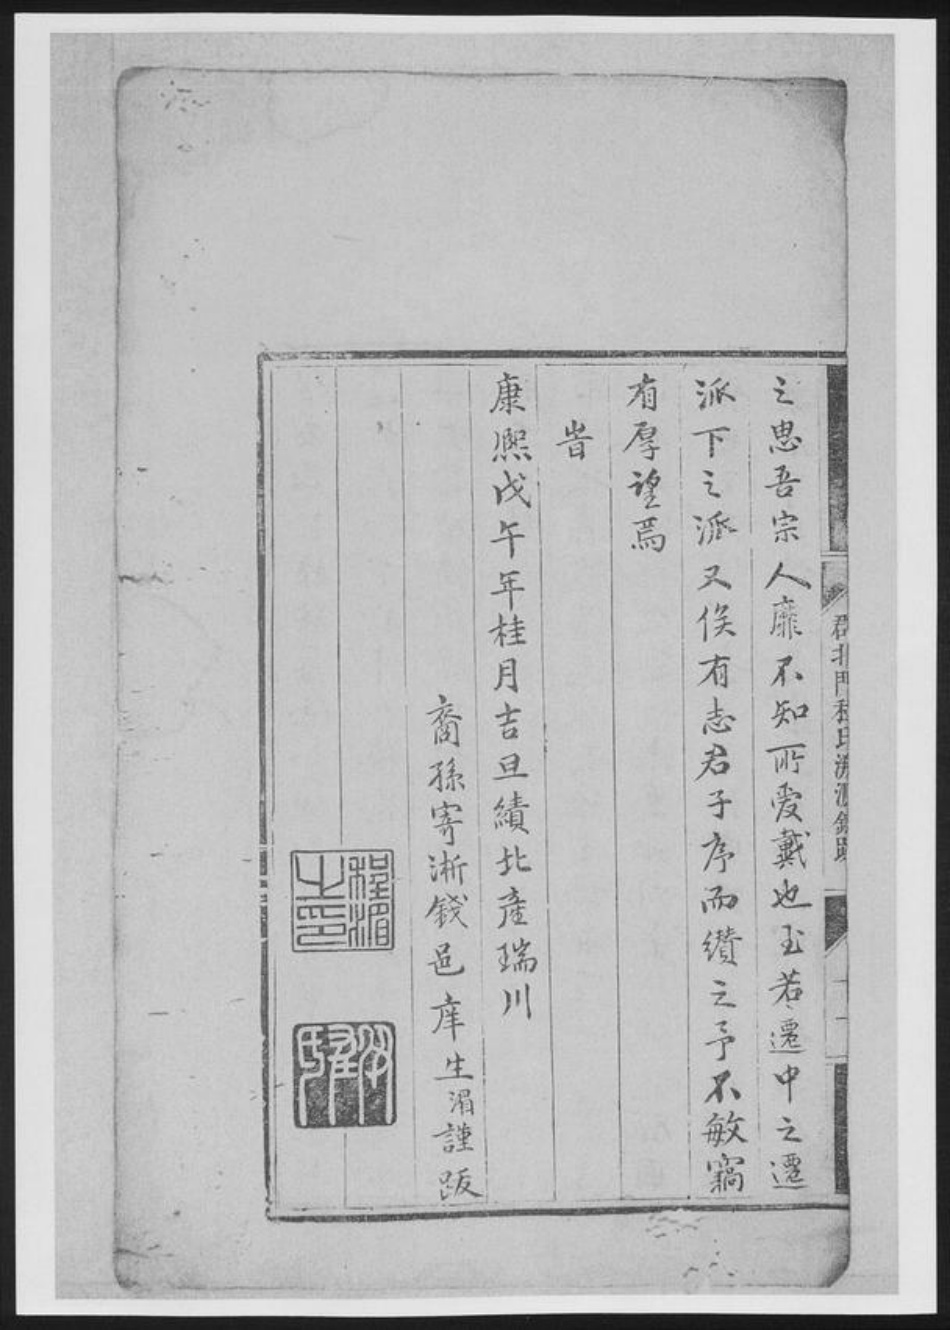 之思吾宗人靡不知所愛戴也玉若遷中之遷
派下之派又俟有志君子序而纘之予不敏竊
有厚望焉
旹
康熙戊午年桂月吉旦績北產瑞川
裔孫寄浙錢邑庠生湄謹跋
程湄之印
郡北門程氏溯源錄跋